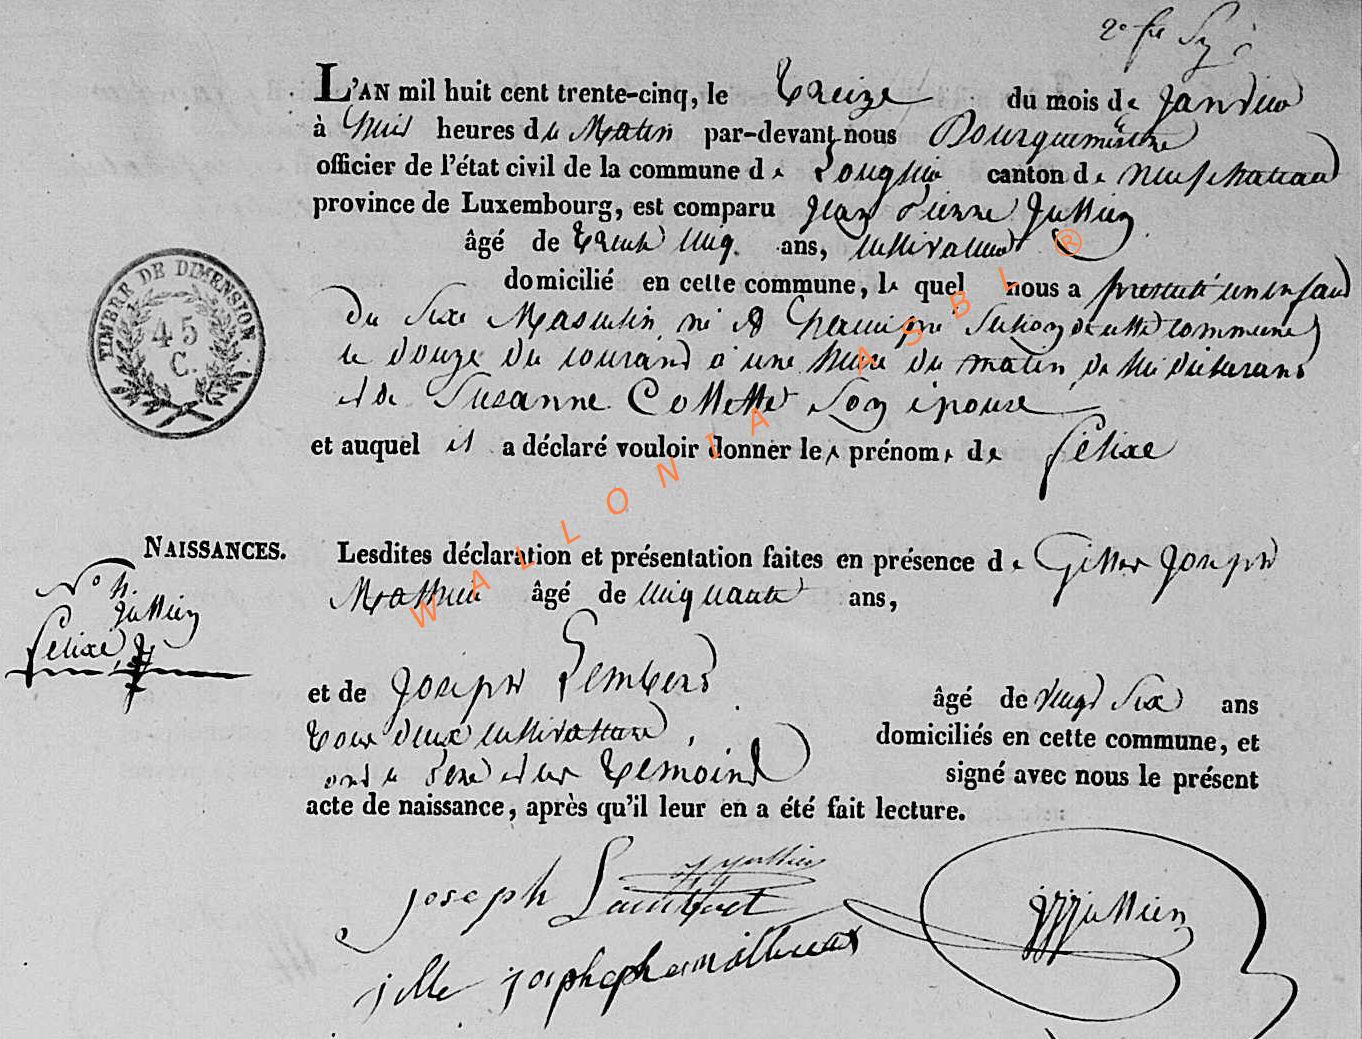 2e fre
L'AN mil huit cent trente-cinq, le treize du mois de Janvier
à huit heures du Matin par-devant nous Bourguemestre
officier de l'état civil de la commune de Longlier canton de neufchateau
province de Luxembourg, est comparu Jean Pierre Jullien
âgé de trente cinq ans, cultivateur
domicilié en cette commune, le quel nous a presenté un enfant
du Sexe Masculin né à Section de cette commune
le douze du courant à une heure du matin, de lui déclarant
et de Susanne Collette Son épouse
et auquel il a déclaré vouloir donner les prénoms de Félixe
NAISSANCES.
N° 4.
Jullien
Félixe
Lesdites déclaration et présentation faites en présence de Gille Joseph
Mathieu âgé de cinquante ans,
et de Joseph Lembert âgé de vingt Six ans
tous deux cultivateurs, domiciliés en cette commune, et
ont le Père et les temoins signé avec nous le présent
acte de naissance, après qu'il leur en a été fait lecture.
Joseph Lambert
jille joseph mathieu
Jullien
TIMBRE DE DIMENSION
45
C.
WALLONIA ASBL ®